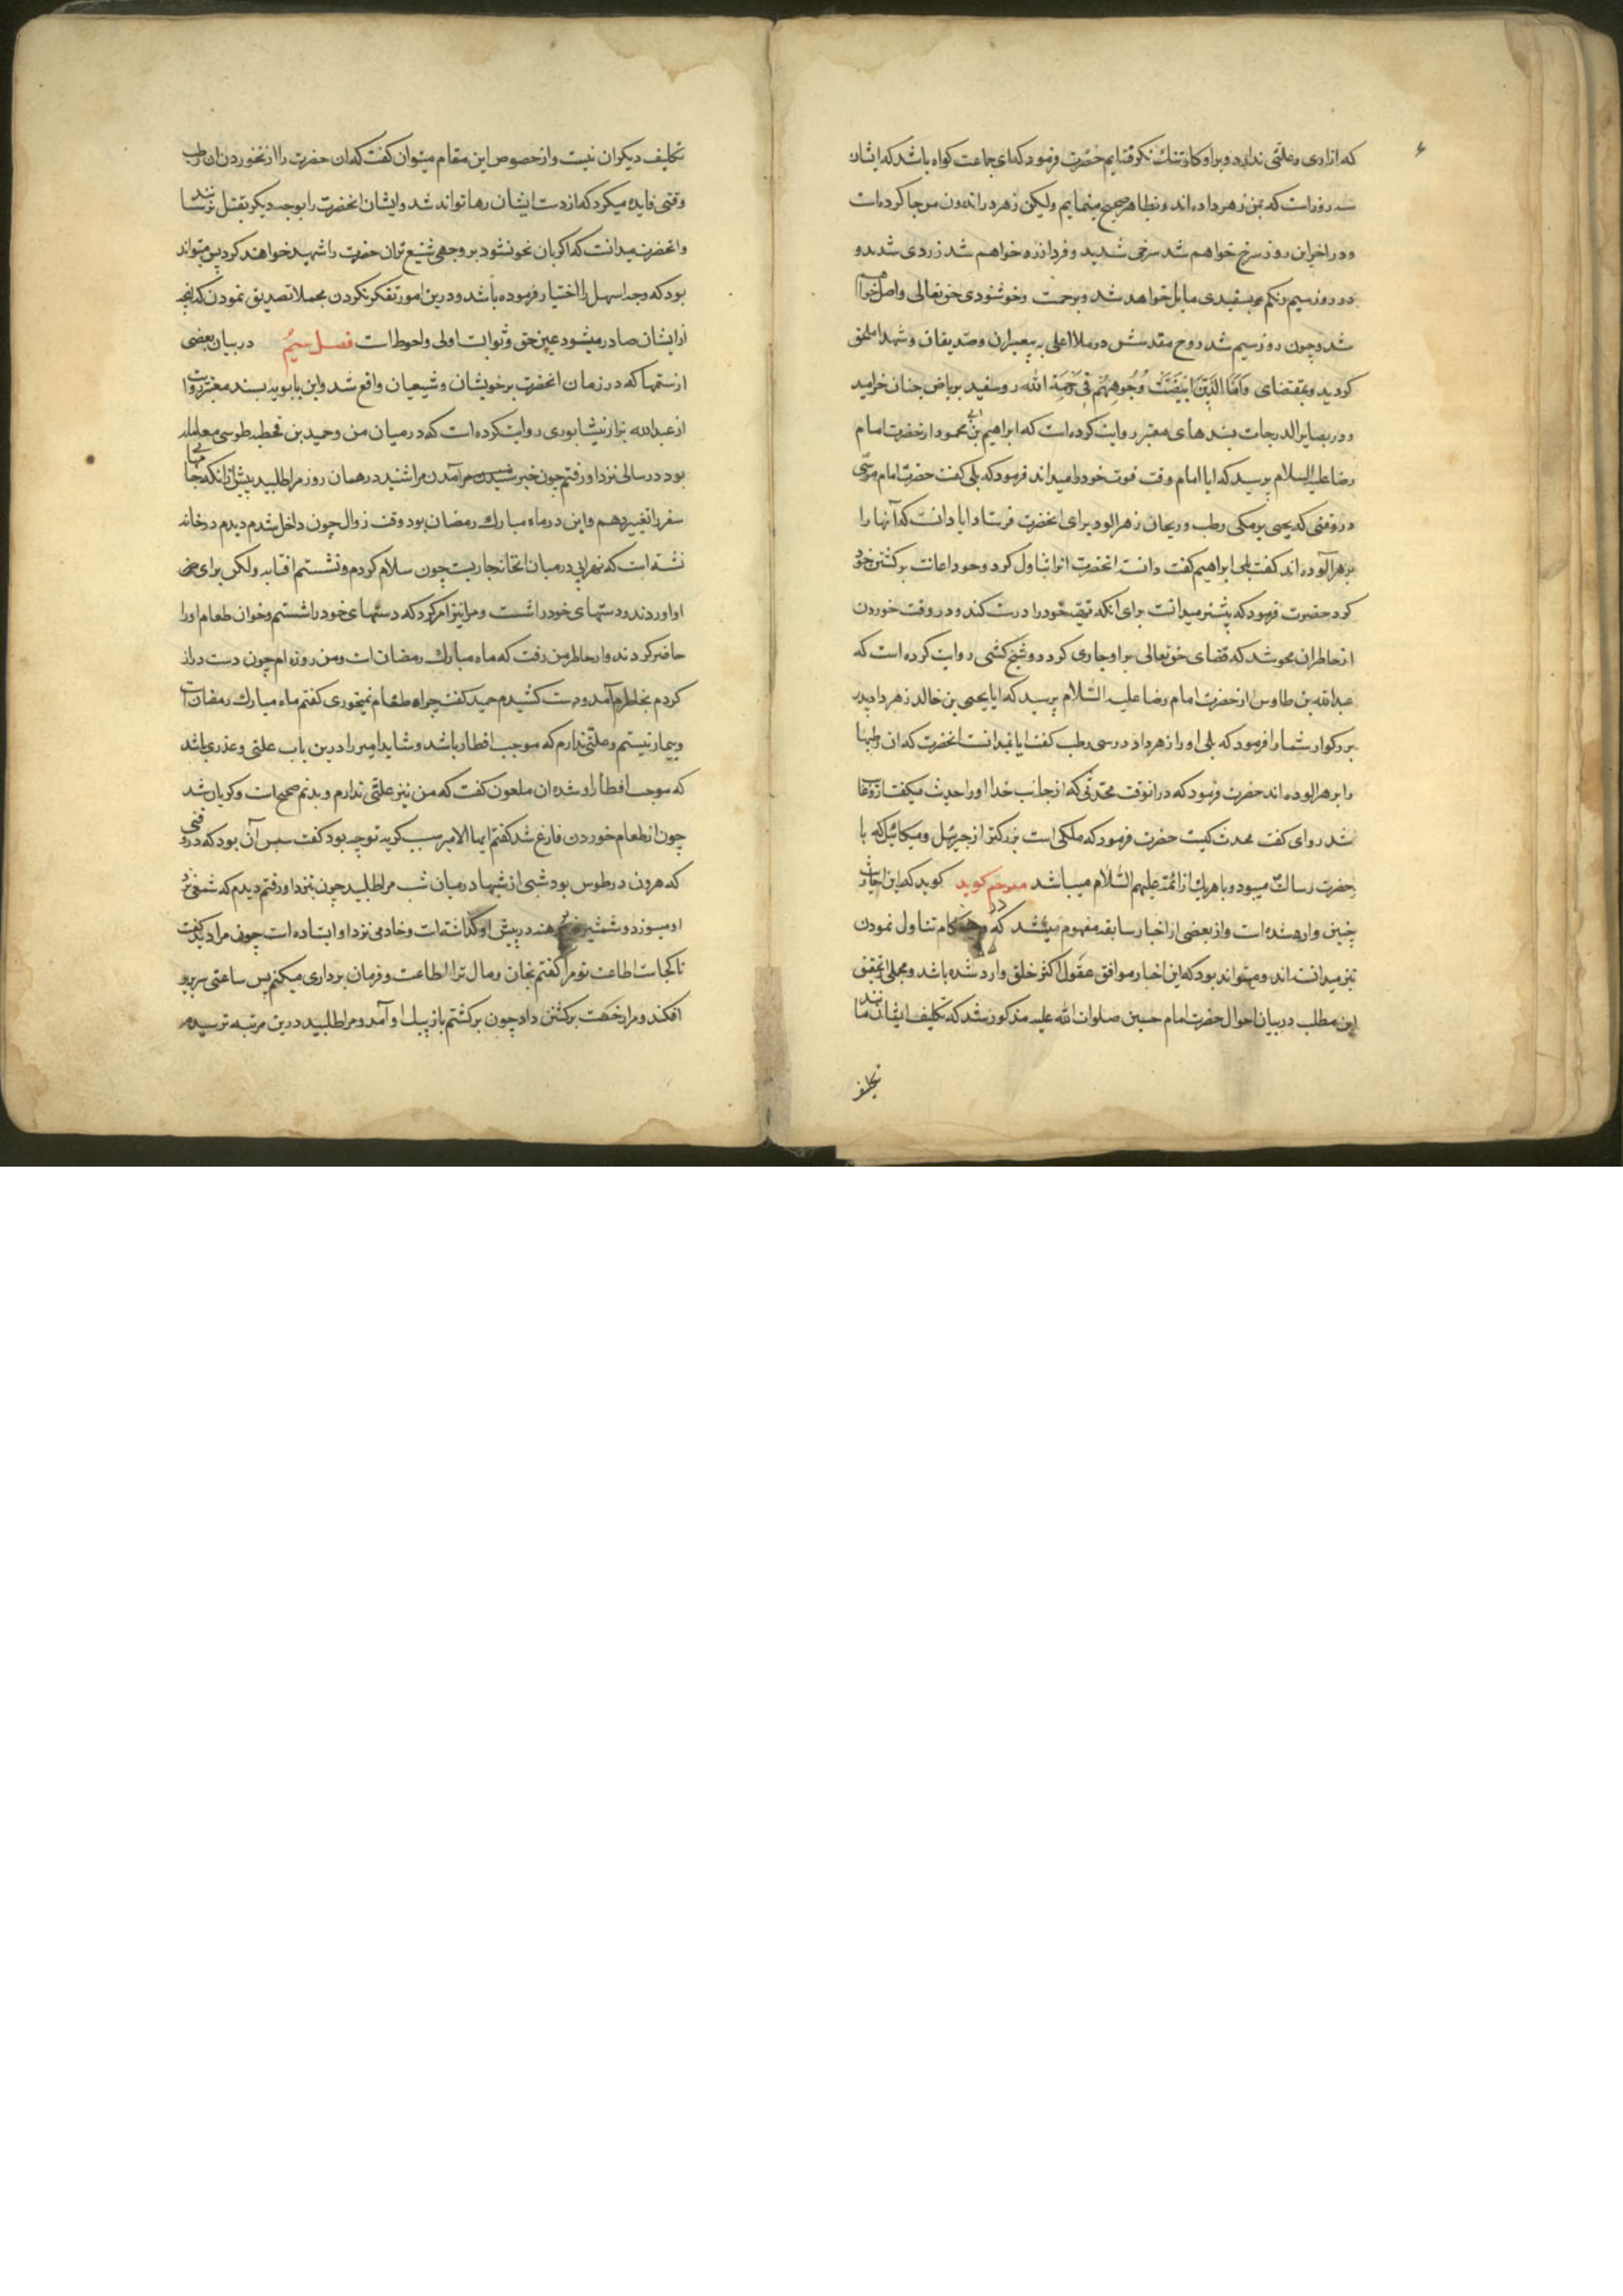 که ازاری و علتی ندارد و بر او کار تنک نکرفته‌ایم حضرت فرمود که ای جماعت کواه باشید که ایشان
سه روز است که بمن زهر داده‌اند و بظاهر صحیح مینمایم ولیکن زهر در اندرون من جا کرده است
و در اخر این روز سرخ خواهم شد سرخی شدید و فردا زرد خواهم شد زردی شدید و
در روز سیم رنکم بسفیدی مایل خواهد شد و برحمت و خوشنودی حق تعالی واصل خواهم
شد و چون روز سیم شد روح مقدسش در ملا اعلی به پیغمبران و صدیقان و شهدا ملحق
کردید و بمقتضای وَاَمَّا الَّذِینَ ابْیَضَّتْ وُجُوهُهُمْ فَفِی رَحْمَةِ الله رو سفید بریاض جنان خرامید
و در بصایر الدرجات بسندهای معتبر روایت کرده است که ابراهیم بن ابی محمود از حضرت امام
رضا علیه السلام پرسید که ایا امام وقت فوت خود را میداند فرمود که بلی کفت حضرت امام موسی
در وقتی که یحیی برمکی رطب و ریحان زهرالود برای انحضرت فرستاد ایا دانست که آنها را
بزهر آلوده‌اند کفت بلی ابراهیم کفت دانسته انحضرت انرا تناول کرد و خود اعانت بر کشتن خود
کرد حضرت فرمود که پیشتر میدانست برای انکه تهیه خود را درست کند و در وقت خوردن
از خاطر ان محو شد که قضای حق تعالی بر او جاری کردد و شیخ کشی روایت کرده است که
عبدالله بن طاوس از حضرت امام رضا علیه السّلام پرسید که ایا یحیی بن خالد زهر داد پدر
بزرکوار شما را فرمود که بلی او را زهر داد در سی رطب کفت ایا نمیدانست انحضرت که ان رطبها
را بزهر الوده‌اند حضرت فرمود که در انوقت محدثی که از جانب خدا او را حدیث میکفت از او غایب
شد راوی کفت محدث کیست حضرت فرمود که ملکی است بزرکتر از جبرئیل و میکائیل که با
حضرت رسالت میبود و با هر یک از ائمه علیهم السّلام میباشد مترجم کوید کوید که این احادیث
چنین وارد شده است و از بعضی از اخبار سابقه مفهوم میشد که در هنکام تناول نمودن
نیز میدانسته‌اند و میتواند بود که این اخبار موافق عقول اکثر خلق وارد شده باشد و مجملی از تحقیق
این مطلب در بیان احوال حضرت امام حسین صلوات الله علیه مذکور شد که تکلیف ایشان مانند
تکلیف
تکلیف دیکران نیست و از خصوص این مقام میتوان کفت که ان حضرت را از نخوردن ان رطب
وقتی فایده میکرد که از دست ایشان رها تواند شد و ایشان انحضرت را بوجه دیکر بقتل نرسانند
و انحضرت میدانست که اکر بان نحو نشود بر وجهی شنیع‌تر ان حضرت را شهید خواهند کرد پس میتواند
بود که وجه اسهل را اختیار فرموده باشد و درین امور تفکر نکردن و مجملا تصدیق نمودن که انچه
از ایشان صادر میشود عین حق و ثوابست اولی و احوط است فصل سیُم در بیان بعضی
از ستمها که در زمان انحضرت بر خویشان و شیعیان واقع شد و ابن بابویه بسند معتبر روایت
از عبدالله بزاز نیشابوری روایت کرده است که در میان من و حمید بن قحطبه طوسی معامله
بود در سالی نزد او رفتم چون خبر امدن مرا شنید در همان روز مرا طلبید پیش از انکه جامهای
سفر را تغییر دهم و این در ماه مبارک رمضان بود وقت زوال چون داخل شدم دیدم در خانه
نشسته است که نهر ابی در میان انخانه جاریست چون سلام کردم و نشستم افتابه و لکن برای
او اوردند و دستهای خود را شست و مرا نیز امر کرد که دستهای خود را شستم و خوان طعام او را
حاضر کردند و از خاطر من رفت که ماه مبارک رمضان است و من روزه‌ام چون دست دراز
کردم بخاطرم آمد و دست کشیدم حمید کفت چرا طعام نمیخوری کفتم ماه مبارک رمضان است
و بیمار نیستم و علتی ندارم که موجب افطار باشد و شاید امیر را درین باب علتی و عذری باشد
که موجب افطار او شده ان ملعون کفت که من نیز علتی ندارم و بدنم صحیح است و کریان شد
چون از طعام خوردن فارغ شد کفتم ایها الامیر سبب کریه تو چه بود کفت سببش آن بود که در وقتی
که هرون در طوس بود شبی از شبها در میان شب مرا طلبید چون نزد او رفتم دیدم که شمعی نزد
او میسوزد و شمشیر برهنه در پیش او کذاشته است و خادمی نزد او ایستاده است چون مرا دید کفت
تا کجاست اطاعت تو مرا کفتم بجان و مال ترا اطاعت و فرمان برداری میکنم پس ساعتی سر بزیر
افکند و مرا رخصت برکشتن داد چون برکشتم باز پیک او آمد و مرا طلبید درین مرتبه ترسیدم